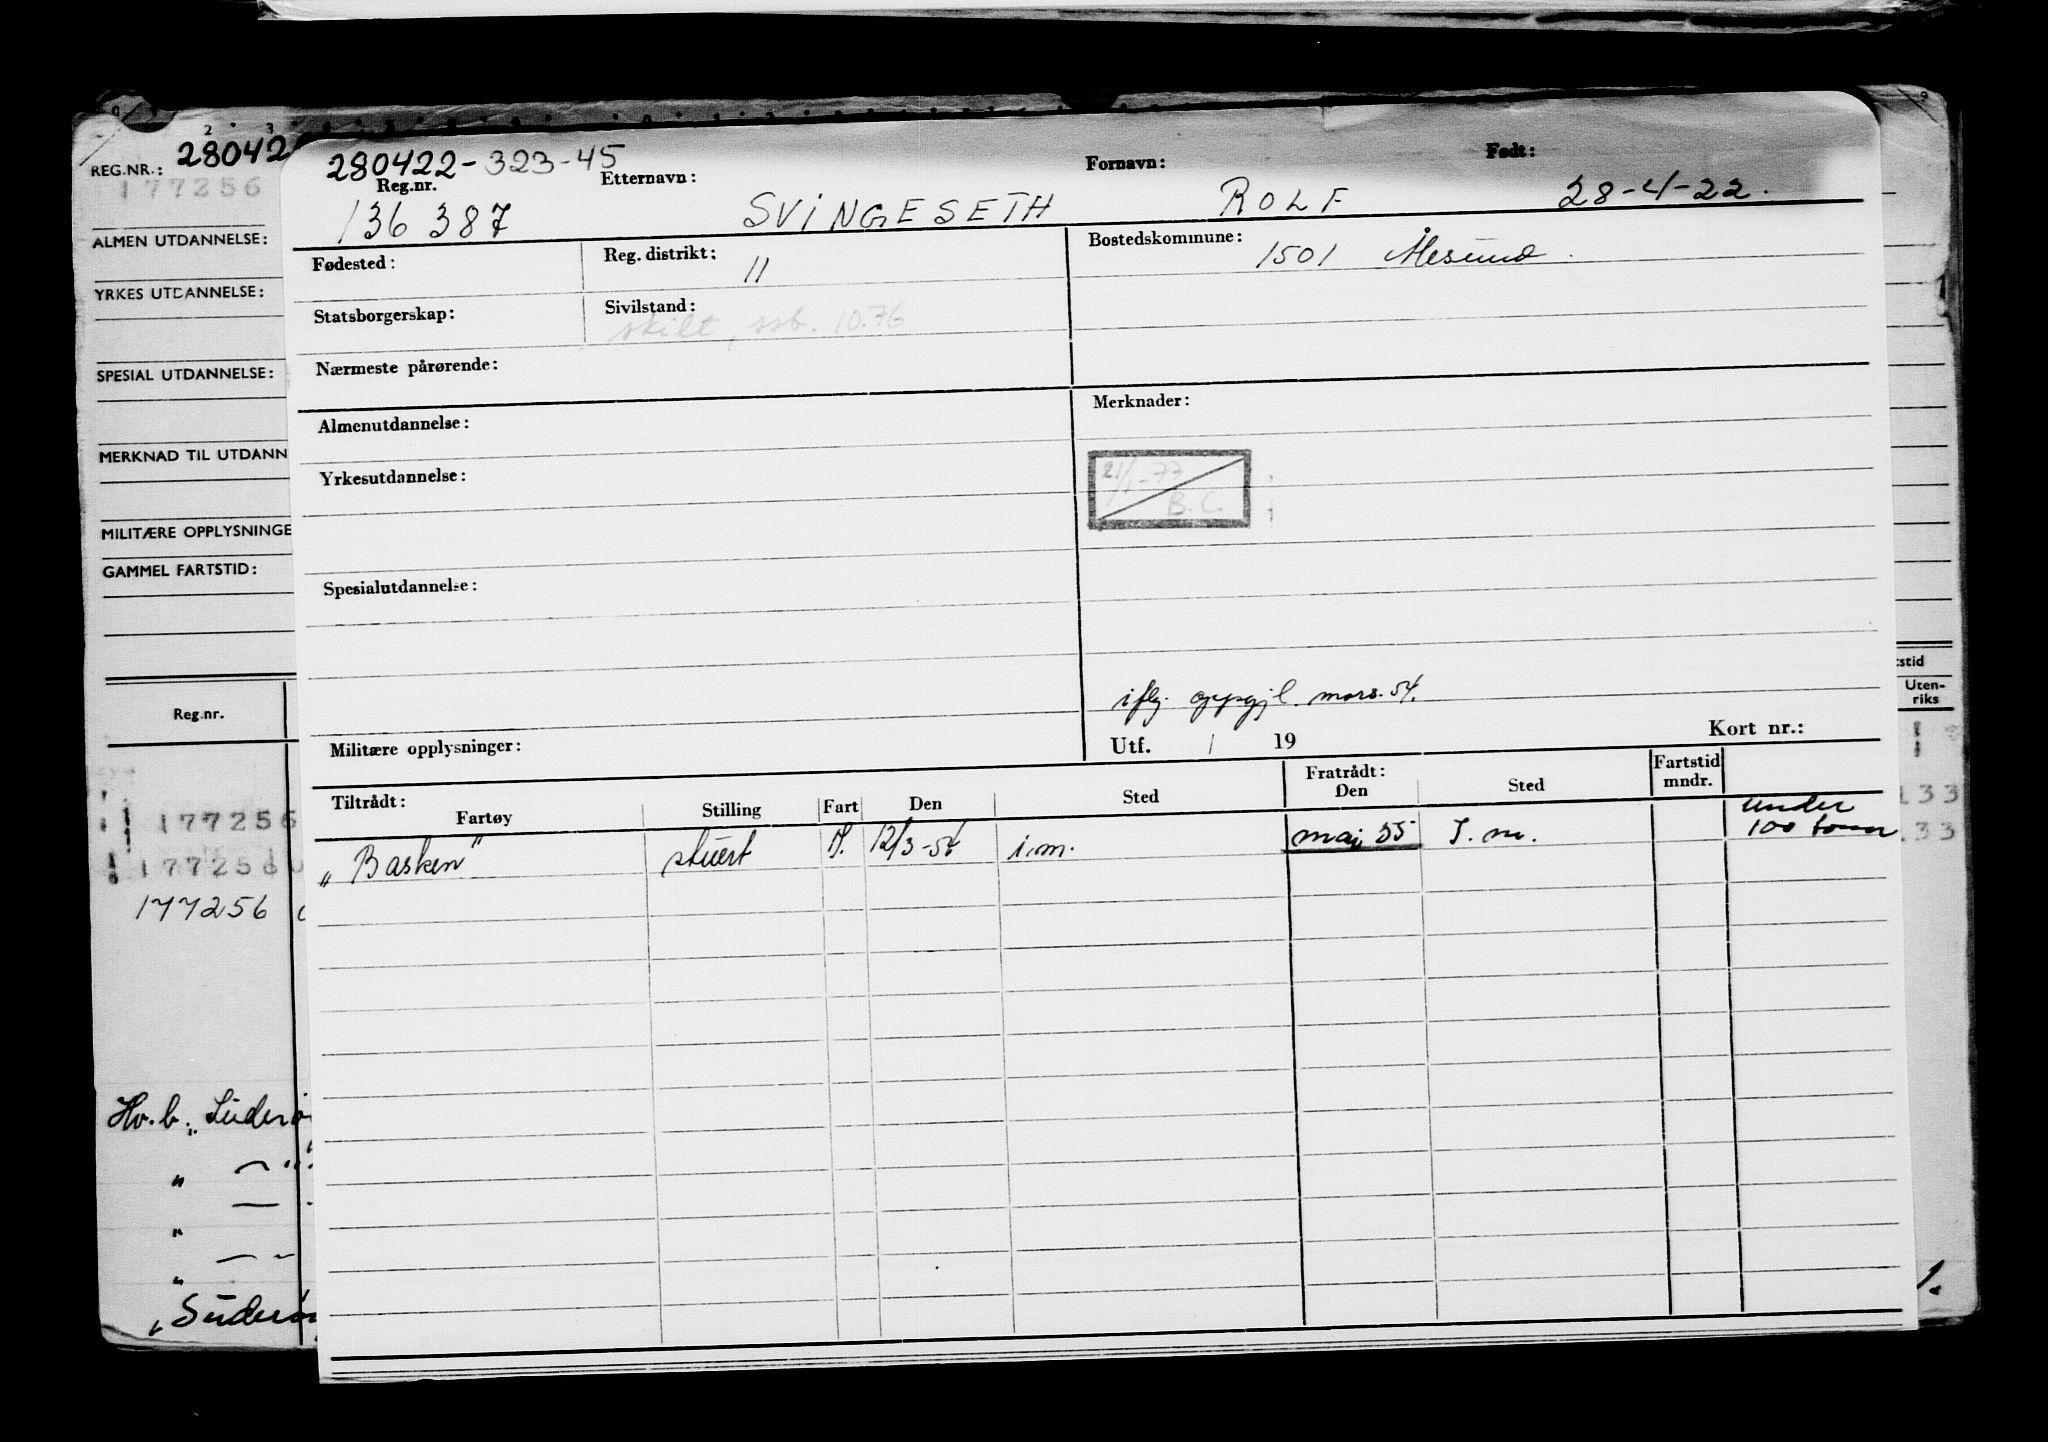 REG.NR.: 28042
177256
ALMEN UTDANNELSE:
YRKES UTDANNELSE:
SPESIAL UTDANNELSE:
MERKNAD TIL UTDANN
MILITÆRE OPPLYSNINGE
GAMMEL FARTSTID:
Reg.nr.
177256
177256
177256
Hv.b. „Süderø
„
„
„
„Süderø
280422-323-45
Reg.nr. Etternavn: Fornavn: Født:
136 387 SVINGESETH ROLF 28-4-22.
Fødested: Reg. distrikt: 11 Bostedskommune: 1501 Ålesund.
Statsborgerskap: Sivilstand:
skilt, ssb. 10.76
Nærmeste pårørende:
Almenutdannelse: Merknader:
Yrkesutdannelse: 21/1-77
B.C.
Spesialutdannelse:
iflg. oppgj. mars. 54.
Militære opplysninger: Utf. / 19 Kort nr.:
Tiltrådt: Fartøy Stilling Fart Den Sted Fratrådt: Den Sted Fartstid mndr.
under
„Basken" stuert 12/3-54 i.m. mai 55 I.m. 100 tonn
stid
Uten-
riks
33
33
1.